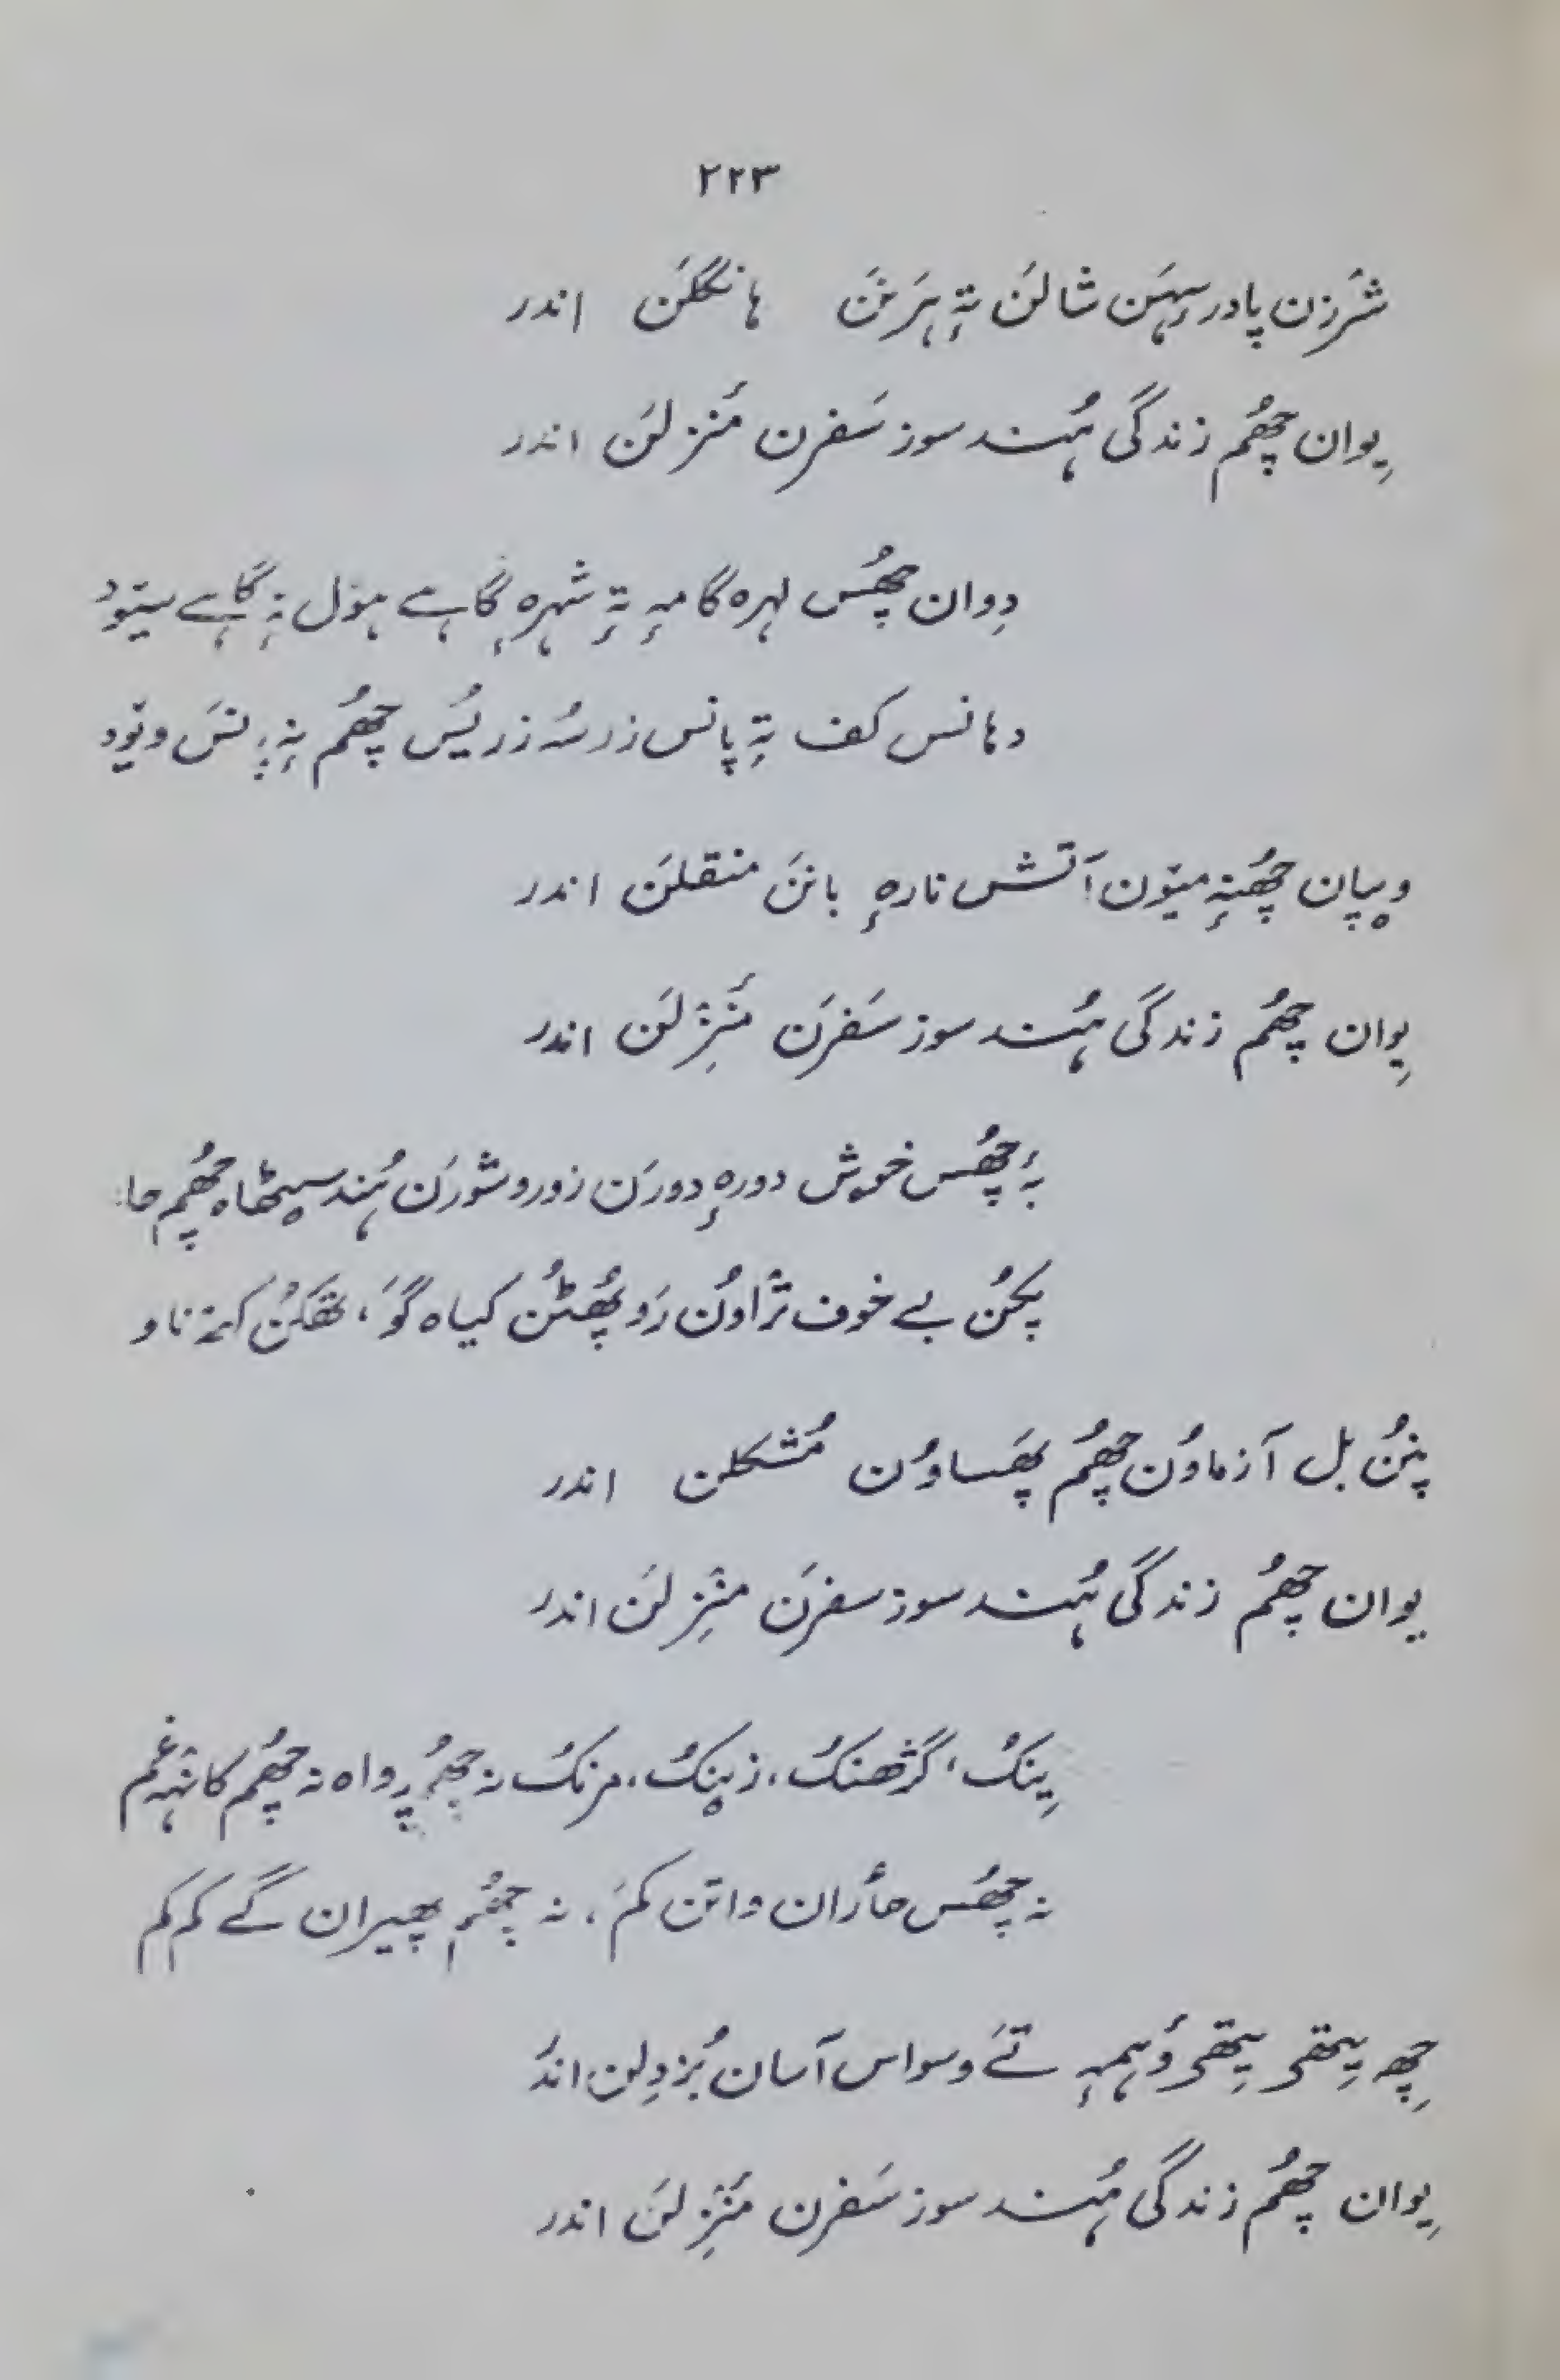 ۲۲۳
شَرزن پادر سہَن شالَن تہٕ ہَرنَن ہانگلَن اندر
یِوان چھُم زندگی ہُند سوز سَفرن مَنزلَن اندر
دِوان چھُس لہرہ گامہٕ تہٕ شہرہ گاہے ہوٚل تہٕ گاہے سیٚود
دہانس کف تہٕ پانس زرٕ زریُس چھُم نہٕ
ویپان چھُنہٕ میوٚن آتش نارہٕ بانَن منقلَن اندر
یِوان چھُم زندگی ہُند سوز سَفرَن مَنزِلَن اندر
بہٕ چھُس خوش دورہٕ دورَن زوروشورَن ہُند سیٹھاہ چھُم چا
پکُن بے خوف ترٛاوُن رَو پھُٹُن کیاہ گوَ، تھکُن کتہٕ ناو
پنُن بل آزماوُن چھُم پھَساوُن مُشکلن اندر
یوان چھُم زندگی ہُند سوز سفرَن منزِلَن اندر
یِنکُ، گژھنکُ، زینکُ، مرنکُ نہ چھُم پرواہ نہ چھُم کانہہ غم
نہ چھُس حأران واتن کَم، نہ چھُم پھیران گے کَم کَم
چھِ یِتھی یِتھی وَہمہٕ تےٚ وسواس آسان بُزدِلن اندر
یِوان چھُم زندگی ہُند سوز سَفرن مَنزِلَن اندر